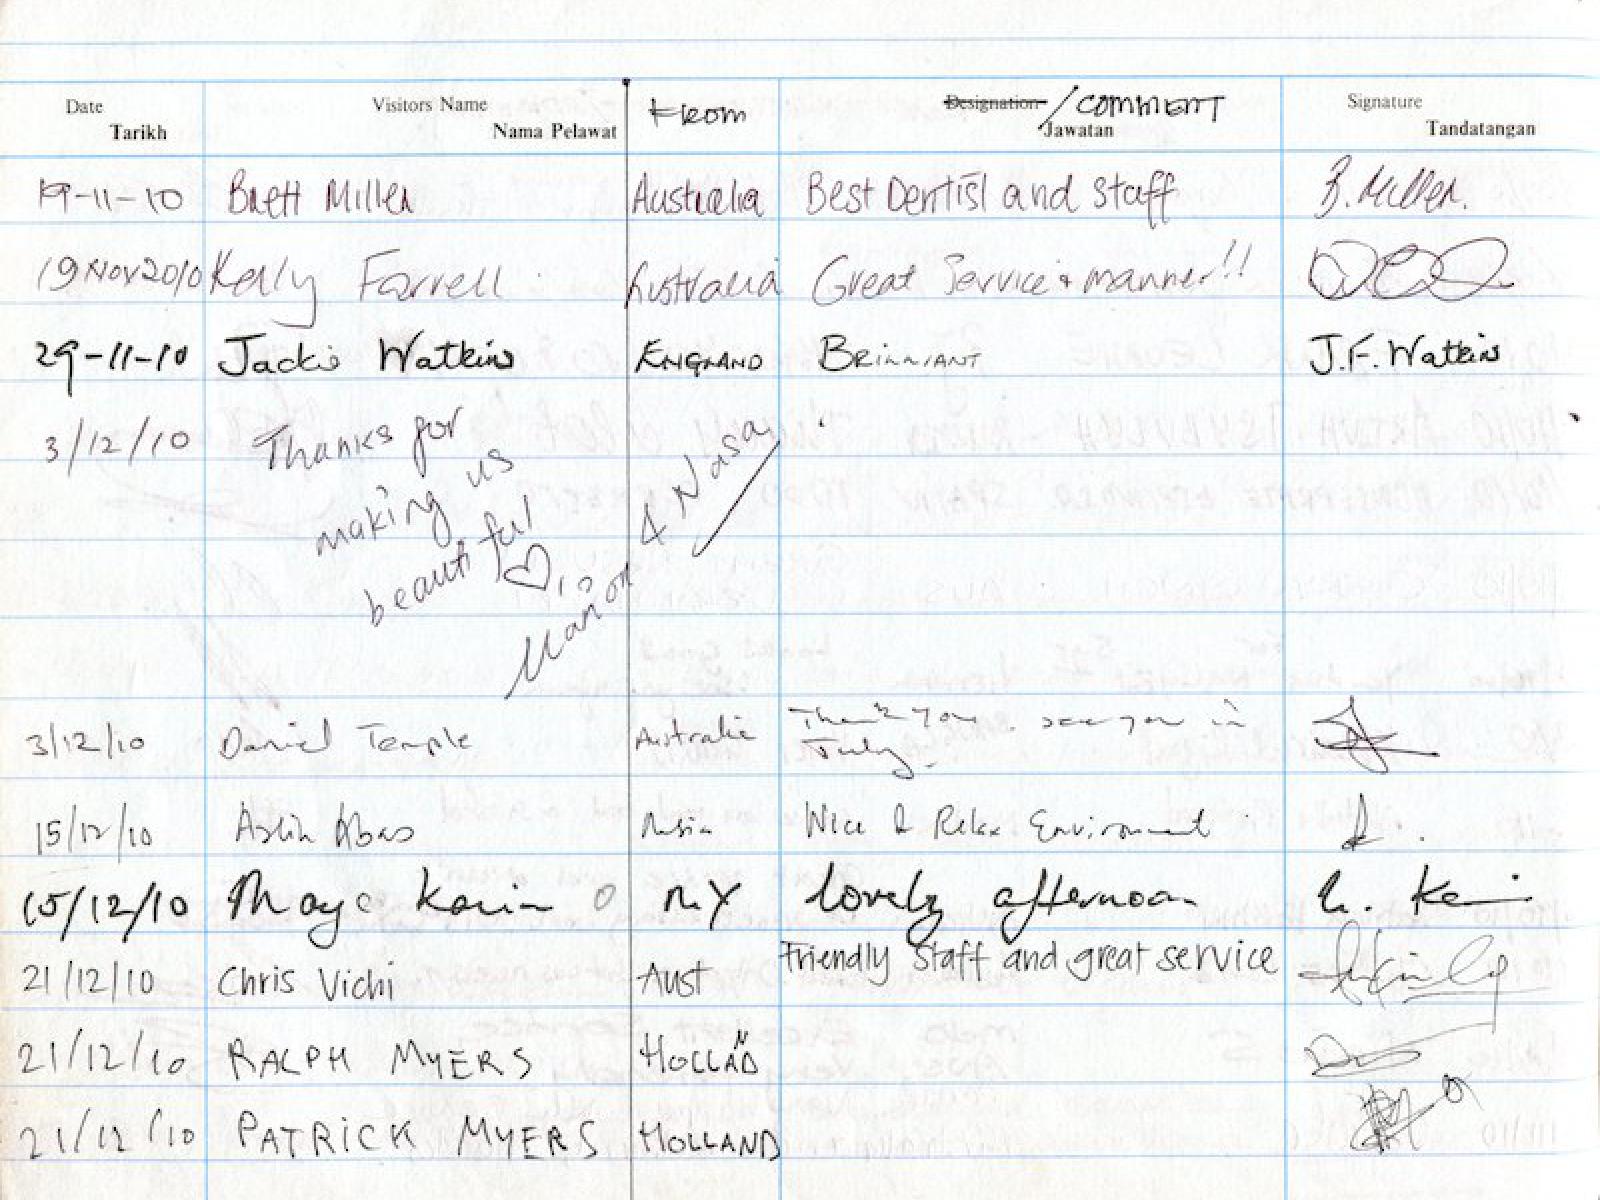 Date Visitors Name From Designation / COMMENT Signature
Tarikh Nama Pelawat Jawatan Tandatangan
19-11-10 Brett Miller Australia Best Dentist and Staff B. Miller.
19 Nov 2010 Kelly Farrell Australia Great Service + manner!!
29-11-10 Jackie Watkins ENGLAND BRILLIANT J.F. Watkins
3/12/10 Thanks for
making us
beautiful
Manon & Nasa
3/12/10 Daniel Temple Australia Thank you. see you in
July.
15/12/10 Azlin Abas Nice & Relax Environment
15/12/10 Maya Karin M.Y lovely afternoon
21/12/10 Chris Vichi Aust Friendly Staff and great service
21/12/10 RALPH MYERS HOLLAND
21/12/10 PATRICK MYERS HOLLAND